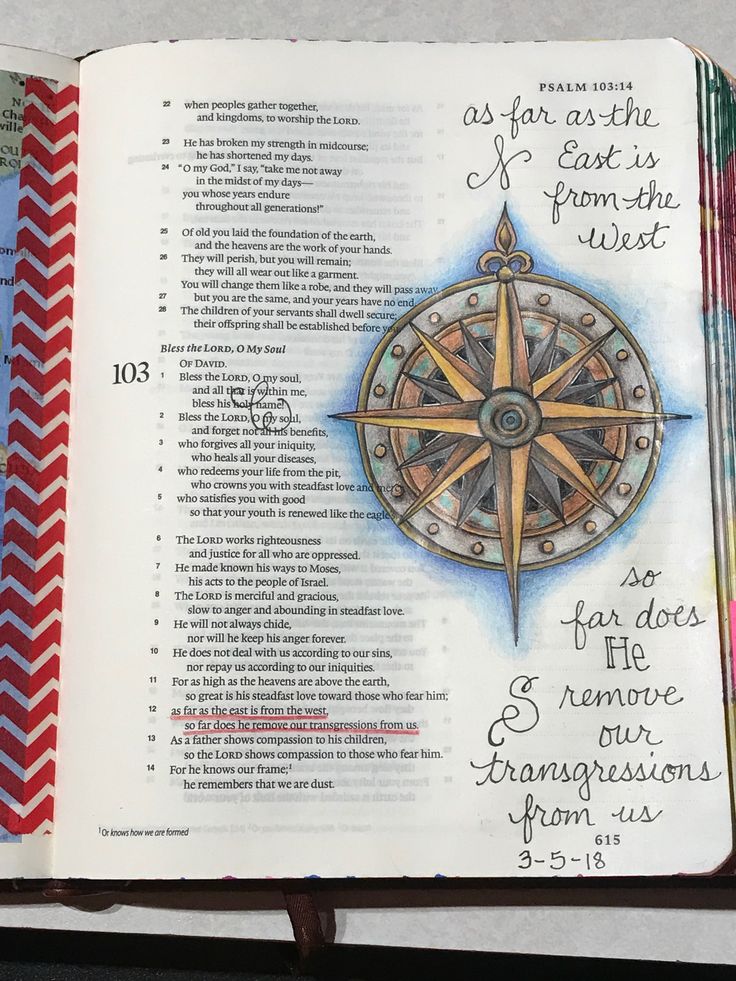 PSALM 103:14
22 when peoples gather together,
and kingdoms, to worship the LORD.
23 He has broken my strength in midcourse;
he has shortened my days.
24 "O my God," I say, "take me not away
in the midst of my days—
you whose years endure
throughout all generations!"
25 Of old you laid the foundation of the earth,
and the heavens are the work of your hands.
26 They will perish, but you will remain;
they will all wear out like a garment.
You will change them like a robe, and they will pass away,
27 but you are the same, and your years have no end.
28 The children of your servants shall dwell secure;
their offspring shall be established before you.
Bless the LORD, O My Soul
103 OF DAVID.
1 Bless the LORD, O my soul,
and all that is within me,
bless his holy name!
2 Bless the LORD, O my soul,
and forget not all his benefits,
3 who forgives all your iniquity,
who heals all your diseases,
4 who redeems your life from the pit,
who crowns you with steadfast love and mercy,
5 who satisfies you with good
so that your youth is renewed like the eagle's
6 The LORD works righteousness
and justice for all who are oppressed.
7 He made known his ways to Moses,
his acts to the people of Israel.
8 The LORD is merciful and gracious,
slow to anger and abounding in steadfast love.
9 He will not always chide,
nor will he keep his anger forever.
10 He does not deal with us according to our sins,
nor repay us according to our iniquities.
11 For as high as the heavens are above the earth,
so great is his steadfast love toward those who fear him;
12 as far as the east is from the west,
so far does he remove our transgressions from us.
13 As a father shows compassion to his children,
so the LORD shows compassion to those who fear him.
14 For he knows our frame;1
he remembers that we are dust.
1 Or knows how we are formed
as far as the
East is
from the
West
N
so
far does
He
S
remove
our
transgressions
from us
615
3-5-18